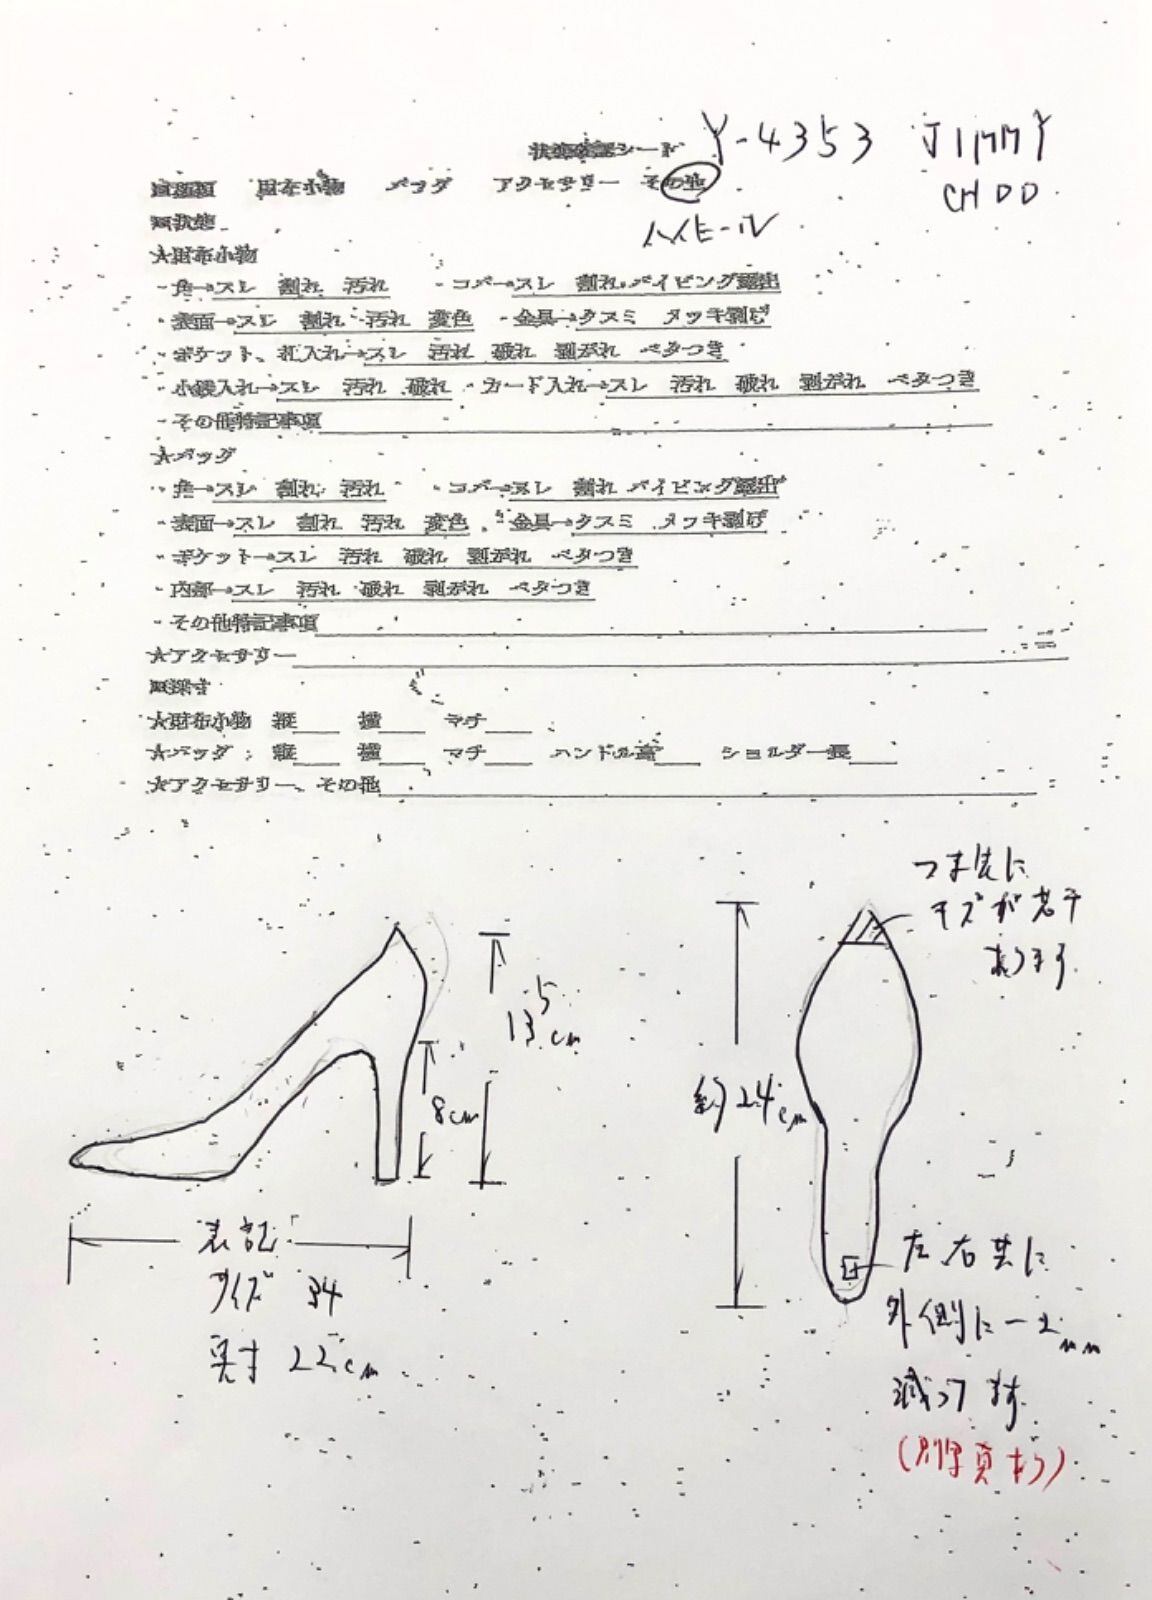 状態確認シート Y-4353 JIMMY
CHOO
■種類 財布小物 バッグ アクセサリー その他
ハイヒール
■状態
★財布小物
・角→スレ 割れ 汚れ ・コバ→スレ 割れ パイピング露出
・表面→スレ 割れ 汚れ 変色 ・金具→クスミ メッキ剥げ
・ポケット、札入れ→スレ 汚れ 破れ 剥がれ ベタつき
・小銭入れ→スレ 汚れ 破れ ・カード入れ→スレ 汚れ 破れ 剥がれ ベタつき
・その他特記事項
★バッグ
・角→スレ 割れ 汚れ ・コバ→スレ 割れ パイピング露出
・表面→スレ 割れ 汚れ 変色 ・金具→クスミ メッキ剥げ
・ポケット→スレ 汚れ 破れ 剥がれ ベタつき
・内部→スレ 汚れ 破れ 剥がれ ベタつき
・その他特記事項
★アクセサリー
■採寸
★財布小物 縦 横 マチ
★バッグ 縦 横 マチ ハンドル高 ショルダー長
★アクセサリー、その他
つま先に
キズが若干
あります
13.5cm
8cm
約24cm
表記
サイズ 34
実寸 22cm
左右共に
外側に一2mm
減ってます
(別写真あり)